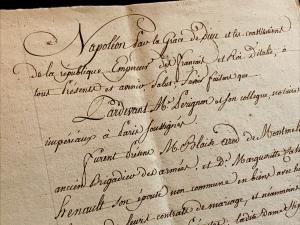 Napoléon par la Grace de Dieu et les constitutions
de la république Empereur des Français et Roi d'italie, à
tous présents et avenir Salut, Savoir faisons que
Pardevant Me Perignon et son collegue, notaires
impériaux à Paris soussignés
furent présens M.
ancien Brigadier des armées, et De Marguerite
Henault son épouse non commune en biens avec
leur contrat de mariage, et néanmoins